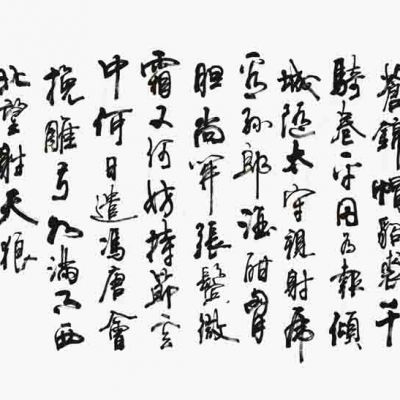 蒼錦帽貂裘千
騎卷平岡为報傾
城隨太守親射虎
看孫郎酒酣胸
胆尚開張鬢微
霜又何妨持節雲
中何日遣馮唐會
挽雕弓如滿月西
北望射天狼